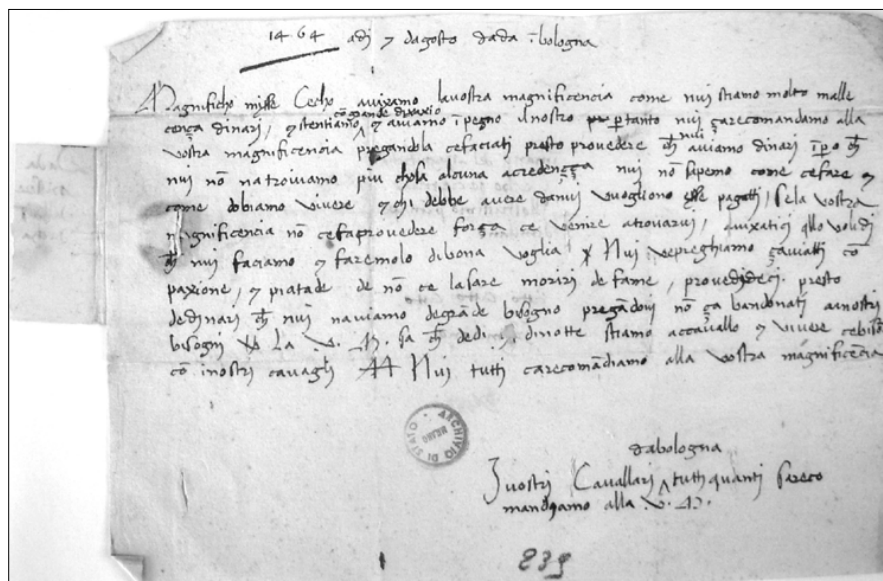 1464 adi 7 dagosto dada ībologna
Magnificho misse Cecho avixamo lavostra magnificencia come nui stiamo molto malle
cō grande dixaxio
cença dinari, 7 stentiamo 7 aviamo īpegno ilnostro per tanto nui çarecomandamo alla
nui
vostra magnificencia pregandola cefaciati presto provedere aviamo dinari
nui nō natroviamo più chola alcuna acredença nui nō sapemo come cefare 7
come dobiamo vivere 7 chi debbe avere danui vuogliono esse pagatti, sela vostra
magnificencia nō cefaprovedere força ce venire atrovarvi, avixatici qllo volidi
nui faciamo 7 faremolo dibona voglia Nui vepreghiamo çaviatti cō
paxione, 7 piatade de nō ce lasare moriri de fame, provedideci presto
dedinari nui naviamo degrāde bisogno pregādovi nō ça bandonati ainostri
bisogni La V. M. sa dedi 7 dinotte stiamo accavallo 7 vivere cebisō
cō inostri cavagli Nui tutti carecomādiamo alla vostra magnificēcia
ARCHIVIO DI STATO
MILANO
dabologna
I vostri Cavallari tutti quanti sareco
mandiamo alla V. M.
239